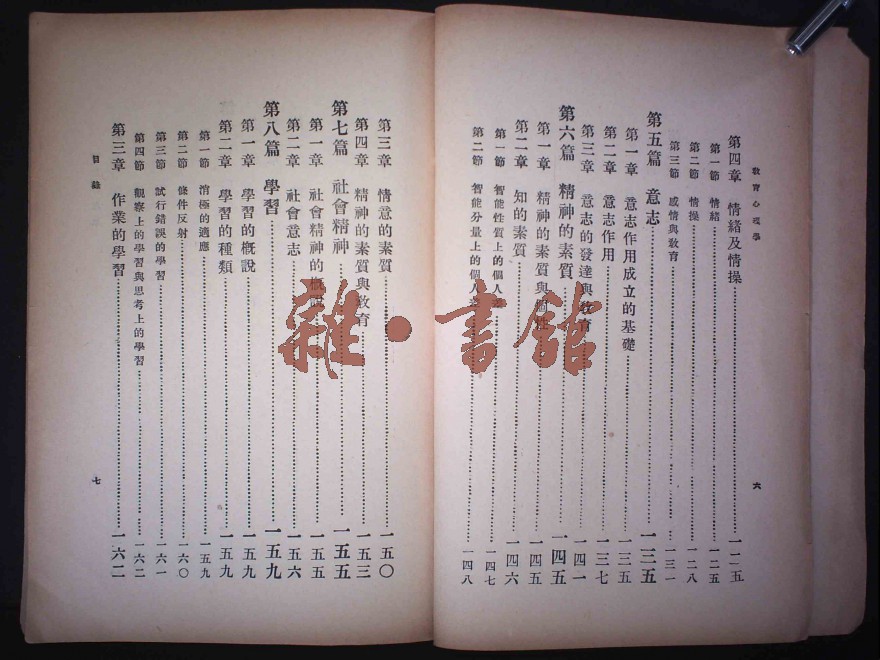 教育心理學
第四章 情緒及情操 一二五
第一節 情緒 一二五
第二節 情操 一二八
第三節 感情與敎育 一三一
第五篇 意志 一三五
第一章 意志作用成立的基礎 一三五
第二章 意志作用 一三七
第三章 意志的發達與敎育 一四一
第六篇 精神的素質 一四五
第一章 精神的素質與個性 一四五
第二章 知的素質 一四六
第一節 智能性質上的個人差 一四七
第二節 智能分量上的個人差 一四八
六
第三章 情意的素質 一五〇
第四章 精神的素質與敎育 一五三
第七篇 社會精神 一五五
第一章 社會精神的概說 一五五
第二章 社會意志 一五六
第八篇 學習 一五九
第一章 學習的概說 一五九
第二章 學習的種類 一五九
第一節 消極的適應 一五九
第二節 條件反射 一六〇
第三節 試行錯誤的學習 一六一
第四節 觀察上的學習與思考上的學習 一六二
第三章 作業的學習 一六二
目錄
七
雜·書館